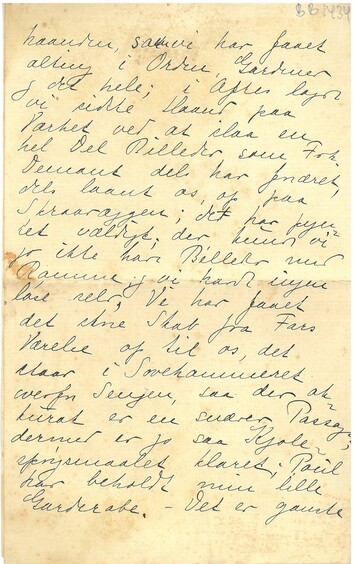 BB1434
haanden, saa vi har faaet
alting i Orden, Gardiner
og det hele; i Aftes lagde
vi sidste Haand paa
Værket ved at slaa en
hel Del Billeder som Frk.
Demant dels har foræret,
dels laant os, op paa
Skraavæggen; det har pyn-
tet vældigt, der kund vi
jo ikke have Billeder med
Ramme og vi havde ingen
løse selv; Vi har faaet
det store Skab fra Fars
Værelse op til os, det
staar i Sovekammeret
overfor Sengen, saa der ak-
kurat er en snæver Passage;
dermed er jo saa Kjole-
spørgsmaalet klaret; Paul
har beholdt min lille
Garderobe. - Det er ganske